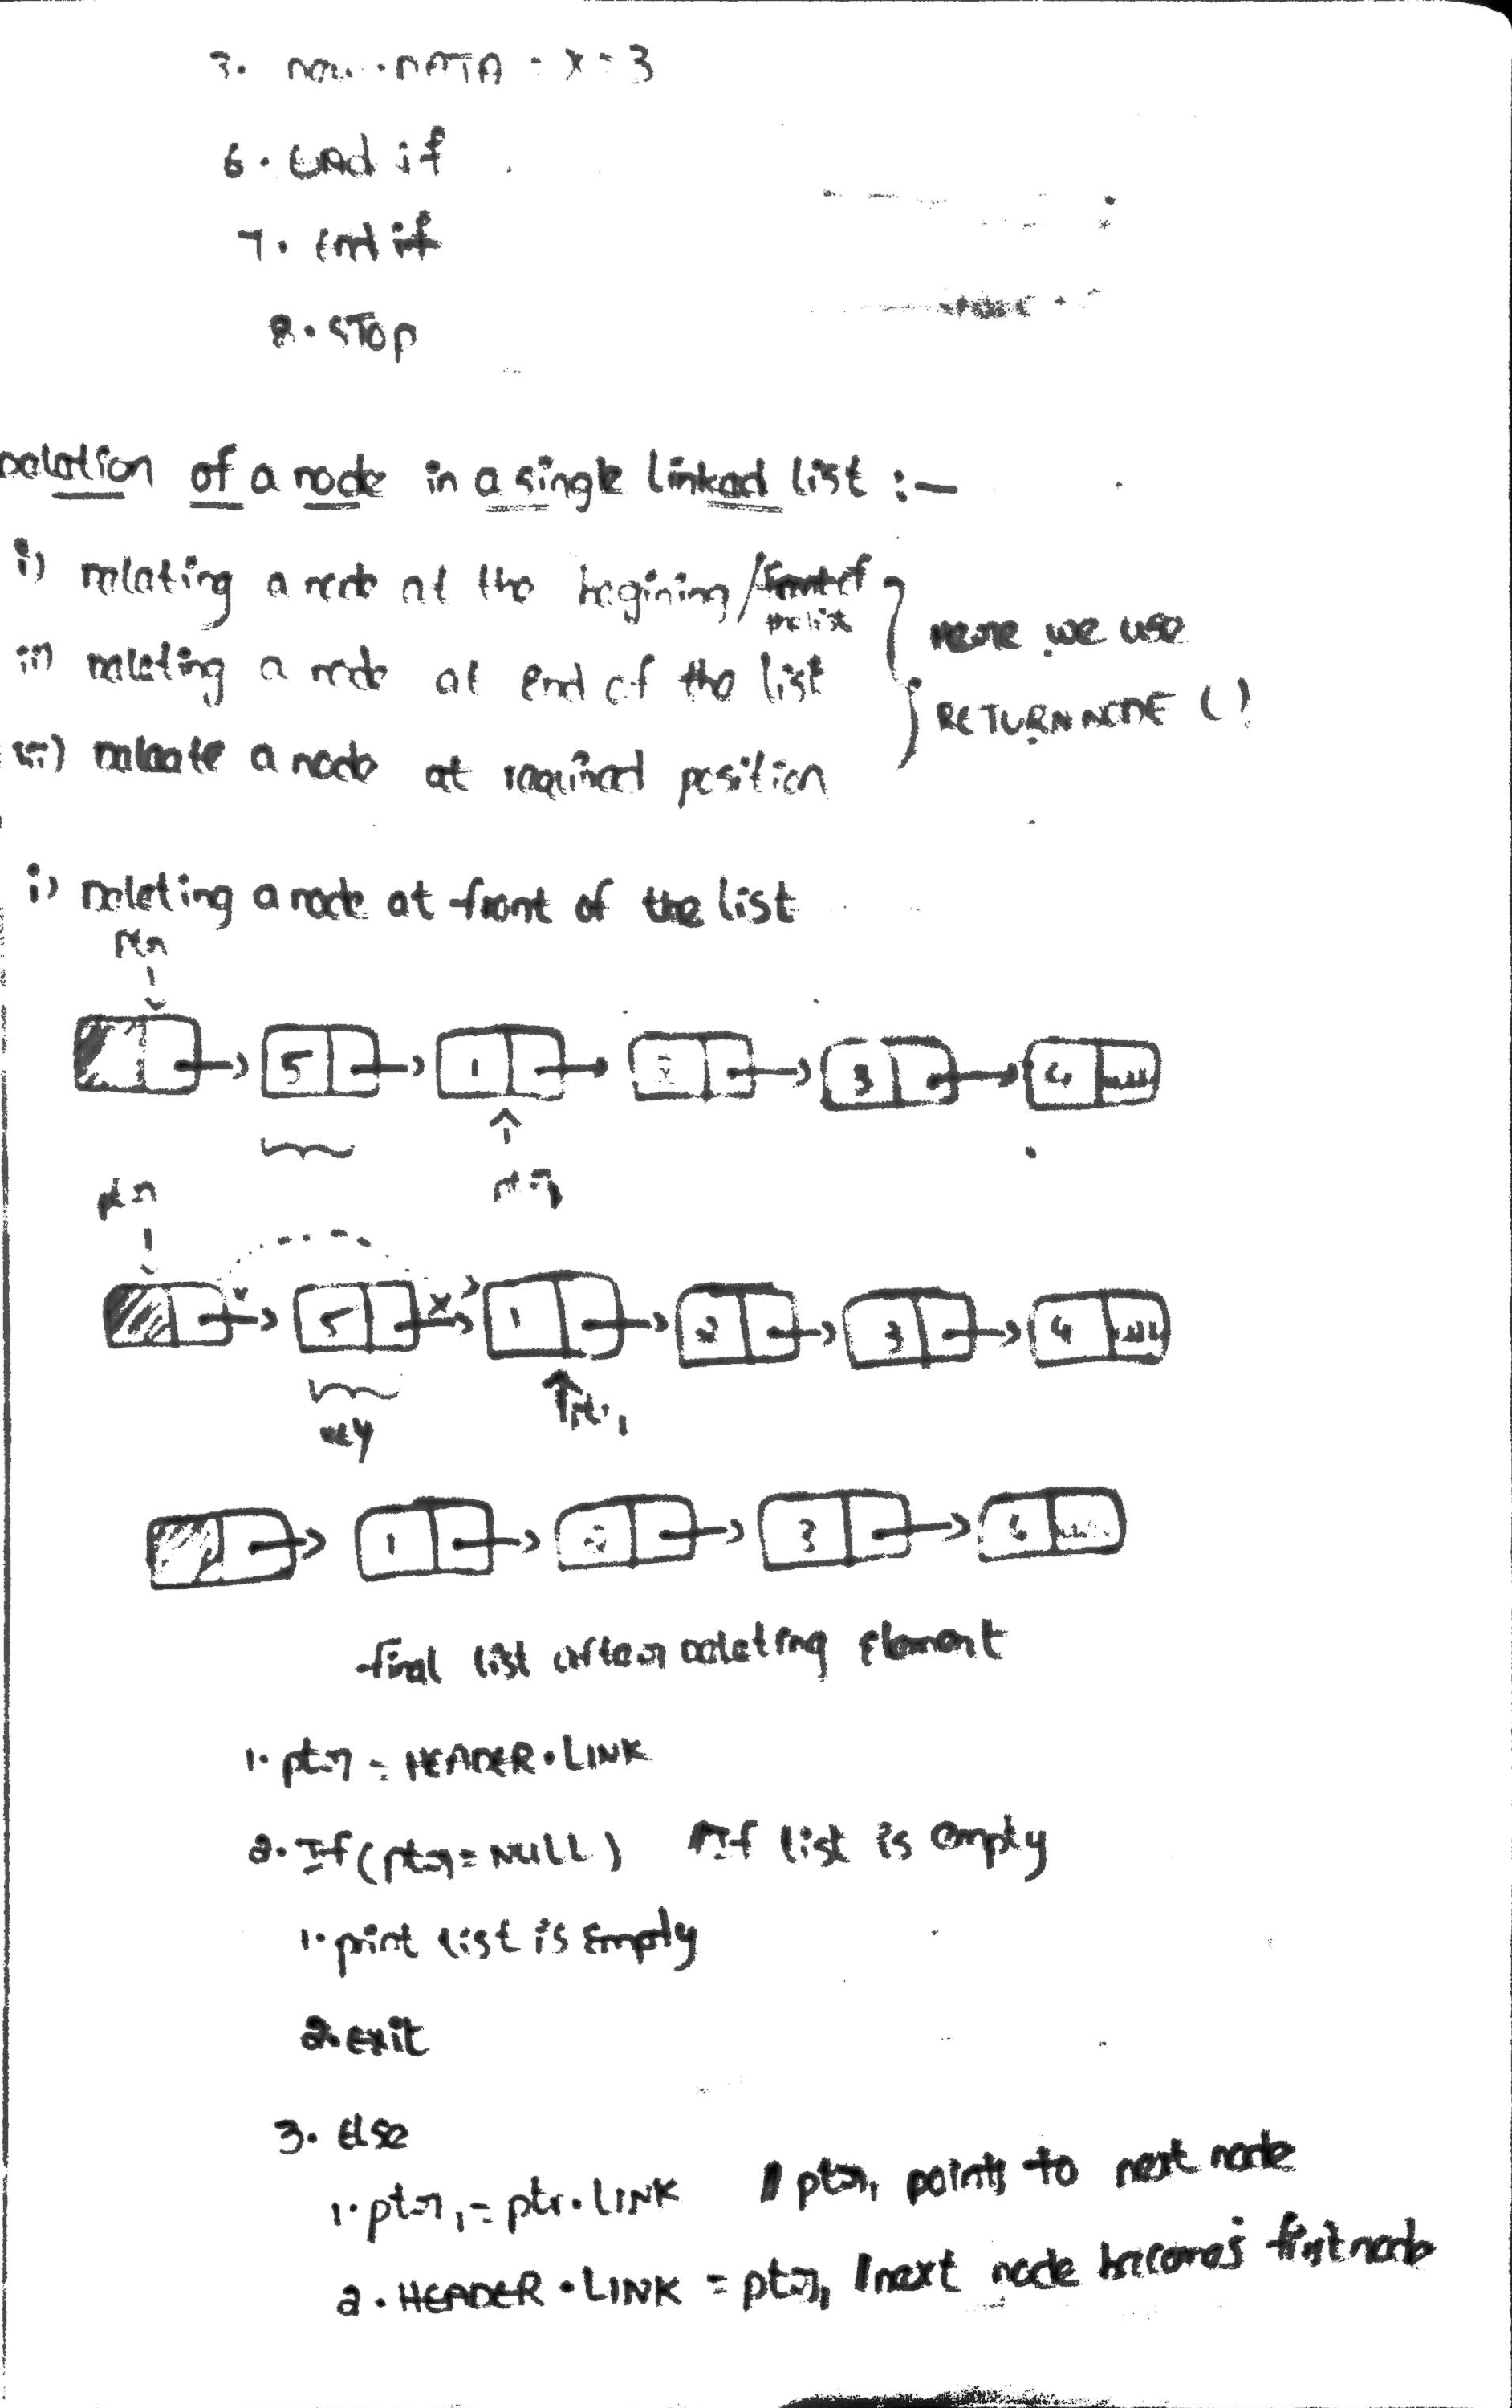 3. new.DATA = X = 3
6. End if
7. End if
8. STOP
Deletion of a node in a single linked list :-
i) Deleting a node at the begining / front of
the list
ii) Deleting a node at end of the list
iii) Deleate a node at required position
Here we use
RETURNNODE ()
i) Deleting a node at front of the list
ptr
5 1 2 3 4 null
ptr1
ptr
5 1 2 3 4 null
key
ptr1
1 2 3 4 null
final list after deleting element
1. ptr = HEADER.LINK
2. If (ptr = NULL) If list is empty
1. print list is Empty
2. exit
3. Else
1. ptr1 = ptr.LINK // ptr1 points to next node
2. HEADER.LINK = ptr1 // next node becomes first node